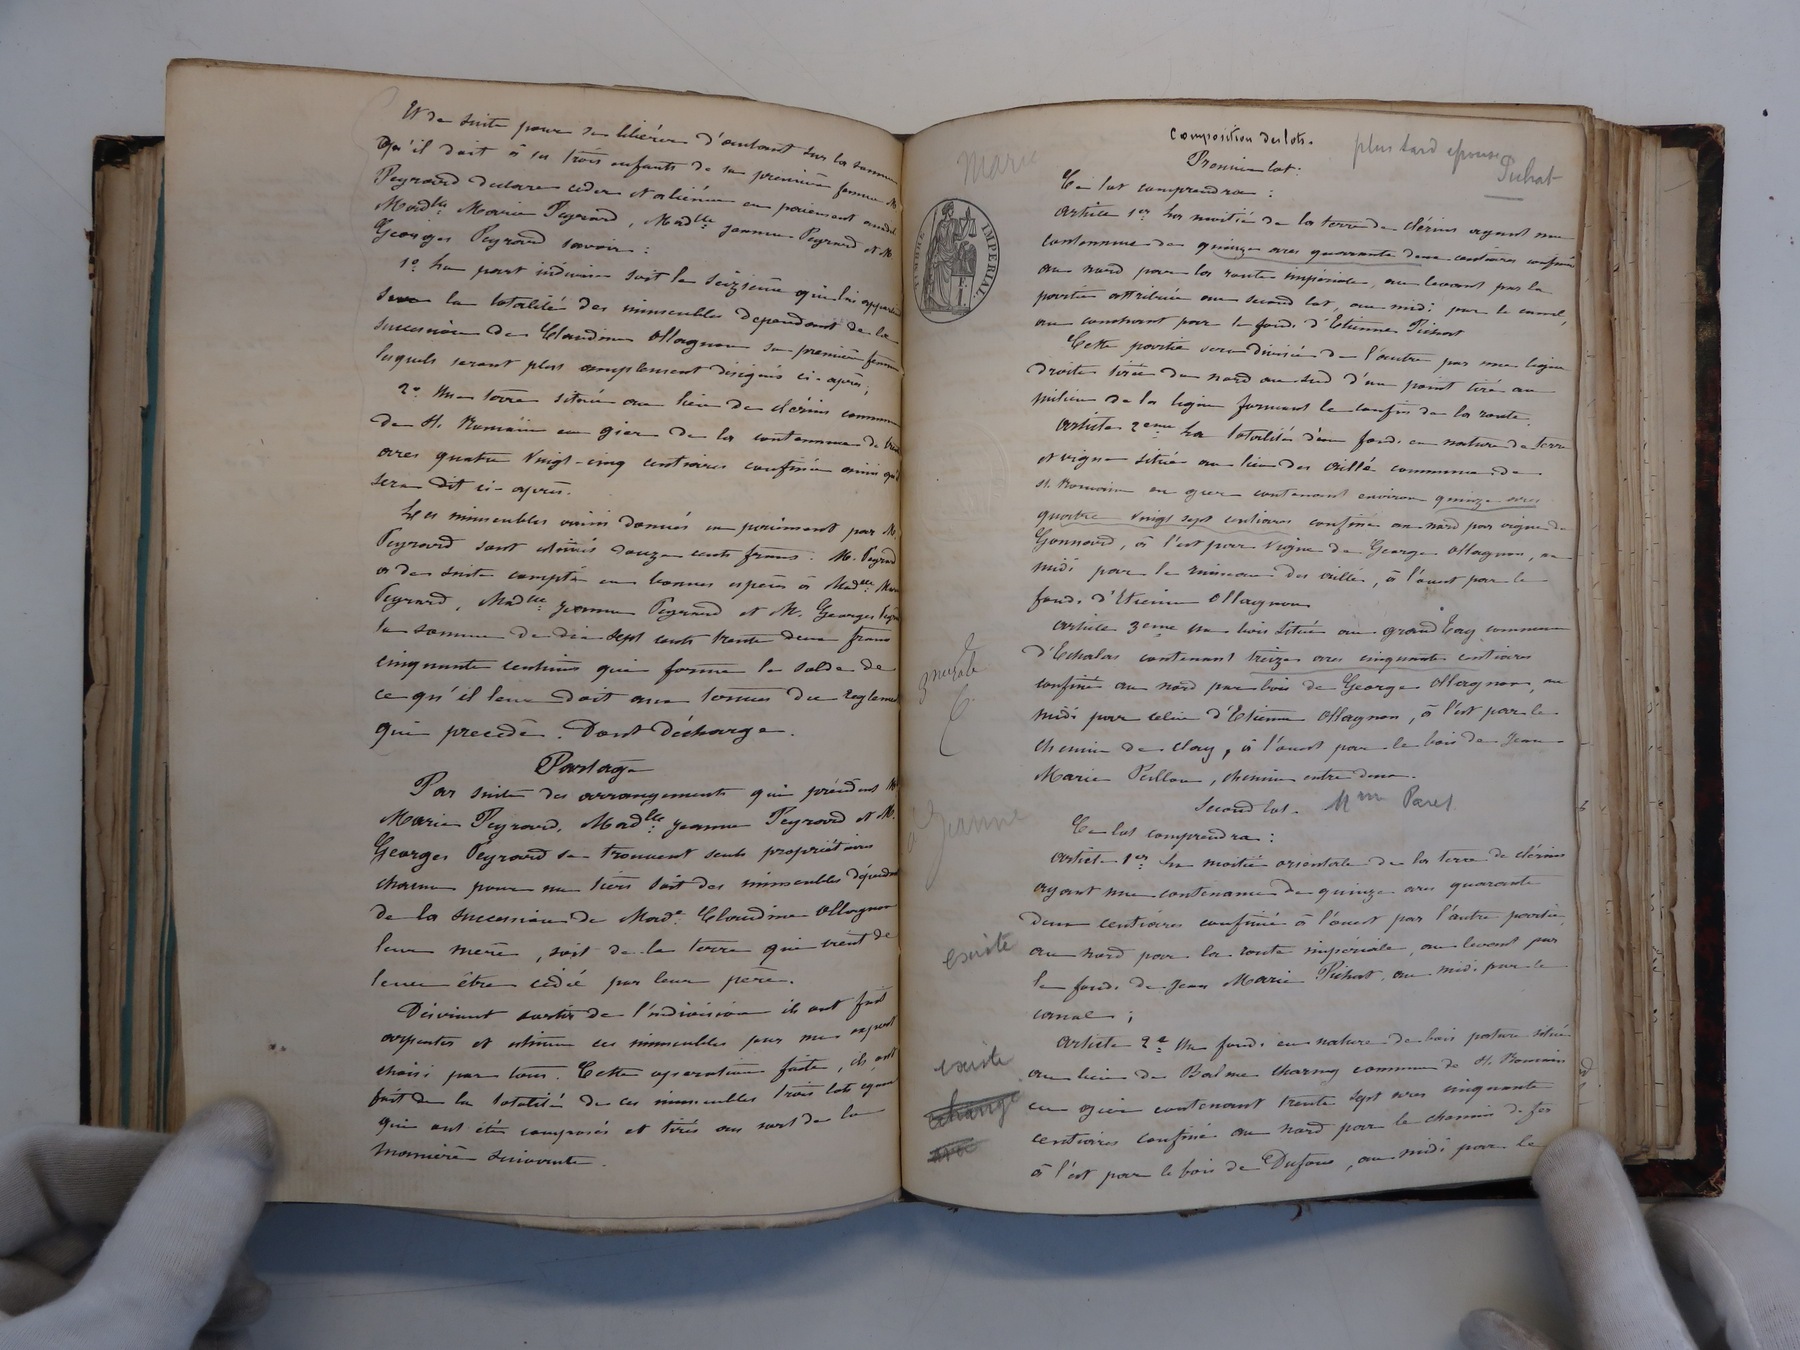 Et de suite pour se libérer d'autant sur la somme
qu'il doit à ses trois enfants de sa première femme M.
Peyrard declare céder et aliéner en paiement à
Madlle Marie Peyrard, Madlle Jeanne Peyrard et M.
Georges Peyrard savoir :
1° La part indivise soit le seizième qui lui appartient
sur la totalité des immeubles dependant de la
succession de Claudine Ollagnon sa première femme
lesquels seront plus amplement désignés ci-après ;
2° Une terre située au lieu de clérins commune
de St. Romain en gier de la contenance de trente
ares quatre vingt-cinq centiares confinée ainsi qu'il
sera dit ci-après.
Les immeubles ainsi donnés en paiement par M.
Peyrard sont estimés douze cents francs. M. Peyrard
a de suite compté en bonnes espèces à Madlle Marie
Peyrard, Madlle Jeanne Peyrard et M. Georges Peyrard
la somme de dix sept cents trente deux francs
cinquante centimes qui forme le solde de
ce qu'il leur doit aux termes du reglement
qui precède. Dont décharge.
Partage
Par suite des arrangements qui précèdent
Marie Peyrard, Madlle Jeanne Peyrard et M.
Georges Peyrard se trouvent seuls propriétaires
chacun pour un tiers soit des immeubles dépendant
de la succession de Made Claudine Ollagnon
leur mère, soit de la terre qui vient de
leur être cédée par leur père.
Désirant sortir de l'indivision ils ont fait
arpenter et estimer ces immeubles par un expert
choisi par tous. Cette opération faite, ils ont
fait de la totalité de ces immeubles trois lots égaux
qui ont étés composés et tirés au sort de la
manière suivante.
Composition des lots.
plus tard epouse
Pichat
Marie
Premier lot.
Ce lot comprendra :
TIMBRE IMPERIAL.
Article 1er La moitié de la terre de clérins ayant une
contenance de quinze ares quarante deux centiares confinée
au nord par la route impériale, au levant par la
portion attribuée au second lot, au midi par le canal,
au couchant par le fonds d'Etienne Pichat
Cette portion sera divisée de l'autre par une ligne
droite tirée du nord au sud d'un point tiré au
milieu de la ligne formant le confin de la route.
Article 2eme La totalité d'un fonds en nature de terre
et vigne située au lieu des commune de
St. Romain en gier contenant environ quinze ares
quatre vingt sept centiares confiné au nord par vigne de
Gonnard, à l'est par vigne de George Ollagnon, au
midi par le ruisseau des, à l'ouest par le
fonds d'Etienne Ollagnon
Article 3eme Un bois situé au grand commune
d'Echalas contenant treize ares cinquante centiares
confiné au nord par bois de George Ollagnon, au
midi par celui d'Etienne Ollagnon, à l'est par le
chemin de, à l'ouest par le bois de Jean
Marie Peillon, chemin entre deux.
Second lot. Mme Paret
Jeanne
Ce lot comprendra :
Article 1er La moitié orientale de la terre de clérins
ayant une contenance de quinze ares quarante
deux centiares confinée à l'ouest par l'autre portion,
existe
au nord par la route imperiale, au levant par
le fonds de Jean Marie Pichat, au midi par le
canal ;
Article 2e Un fonds en nature de bois pature situé
existe
au lieu de Balme charny commune de St. Romain
échangé
en gier contenant trente sept ares cinquante
centiares confiné au nord par le chemin de fer
avec
à l'est par le bois de Dufour, au midi par le